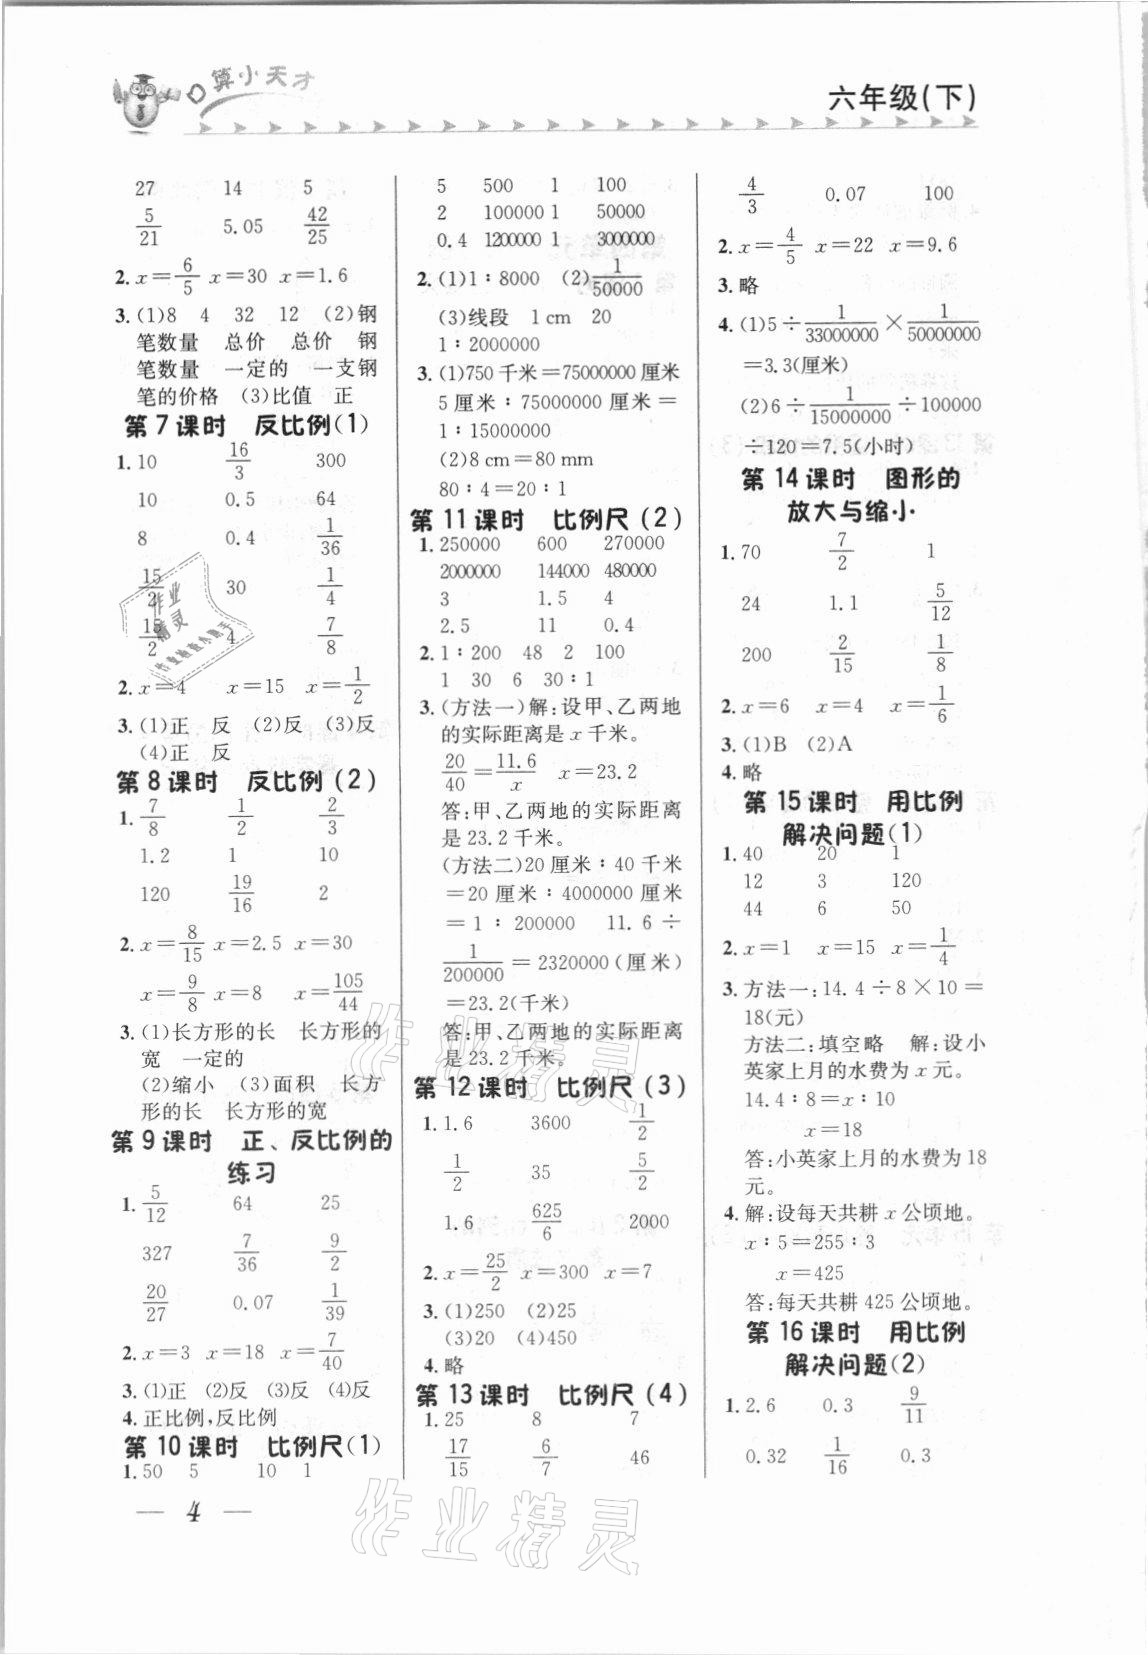 口算小天才
六年级(下)
27 14 5
5/21 5.05 42/25
2. x=6/5 x=30 x=1.6
3. (1)8 4 32 12 (2)钢
笔数量 总价 总价 钢
笔数量 一定的 一支钢
笔的价格 (3)比值 正
第7课时 反比例(1)
1. 10 16/3 300
10 0.5 64
8 0.4 1/36
15/2 30 1/4
15/2 4 7/8
2. x=4 x=15 x=1/2
3. (1)正 反 (2)反 (3)反
(4)正 反
第8课时 反比例(2)
1. 7/8 1/2 2/3
1.2 1 10
120 19/16 2
2. x=8/15 x=2.5 x=30
x=9/8 x=8 x=105/44
3. (1)长方形的长 长方形的
宽 一定的
(2)缩小 (3)面积 长方
形的长 长方形的宽
第9课时 正、反比例的
练习
1. 5/12 64 25
327 7/36 9/2
20/27 0.07 1/39
2. x=3 x=18 x=7/40
3. (1)正 (2)反 (3)反 (4)反
4. 正比例,反比例
第10课时 比例尺(1)
1. 50 5 10 1
5 500 1 100
2 100000 1 50000
0.4 1200000 1 3000000
2. (1)1∶8000 (2)1/50000
(3)线段 1 cm 20
1∶2000000
3. (1)750千米=75000000厘米
5厘米∶75000000厘米=
1∶15000000
(2)8 cm=80 mm
80∶4=20∶1
第11课时 比例尺(2)
1. 250000 600 270000
2000000 144000 480000
3 1.5 4
2.5 11 0.4
2. 1∶200 48 2 100
1 30 6 30∶1
3. (方法一)解:设甲、乙两地
的实际距离是x千米。
20/40=11.6/x x=23.2
答:甲、乙两地的实际距离
是23.2千米。
(方法二)20厘米∶40千米
=20厘米∶4000000厘米
=1∶200000 11.6÷
1/200000=2320000(厘米)
=23.2(千米)
答:甲、乙两地的实际距离
是23.2千米。
第12课时 比例尺(3)
1. 1.6 3600 1/2
1/2 35 5/2
1.6 625/6 2000
2. x=25/2 x=300 x=7
3. (1)250 (2)25
(3)20 (4)450
4. 略
第13课时 比例尺(4)
1. 25 8 7
17/15 6/7 46
4/3 0.07 100
2. x=4/5 x=22 x=9.6
3. 略
4. (1)5÷1/33000000×1/50000000
=3.3(厘米)
(2)6÷1/15000000÷100000
÷120=7.5(小时)
第14课时 图形的
放大与缩小
1. 70 7/2 1
24 1.1 5/12
200 2/15 1/8
2. x=6 x=4 x=1/6
3. (1)B (2)A
4. 略
第15课时 用比例
解决问题(1)
1. 40 20 1
12 3 120
44 6 50
2. x=1 x=15 x=1/4
3. 方法一:14.4÷8×10=
18(元)
方法二:填空略 解:设小
英家上月的水费为x元。
14.4∶8=x∶10
x=18
答:小英家上月的水费为18
元。
4. 解:设每天共耕x公顷地。
x∶5=255∶3
x=425
答:每天共耕425公顷地。
第16课时 用比例
解决问题(2)
1. 2.6 0.3 9/11
0.32 1/16 0.3
— 4 —
作业精灵
作业精灵
作业精灵